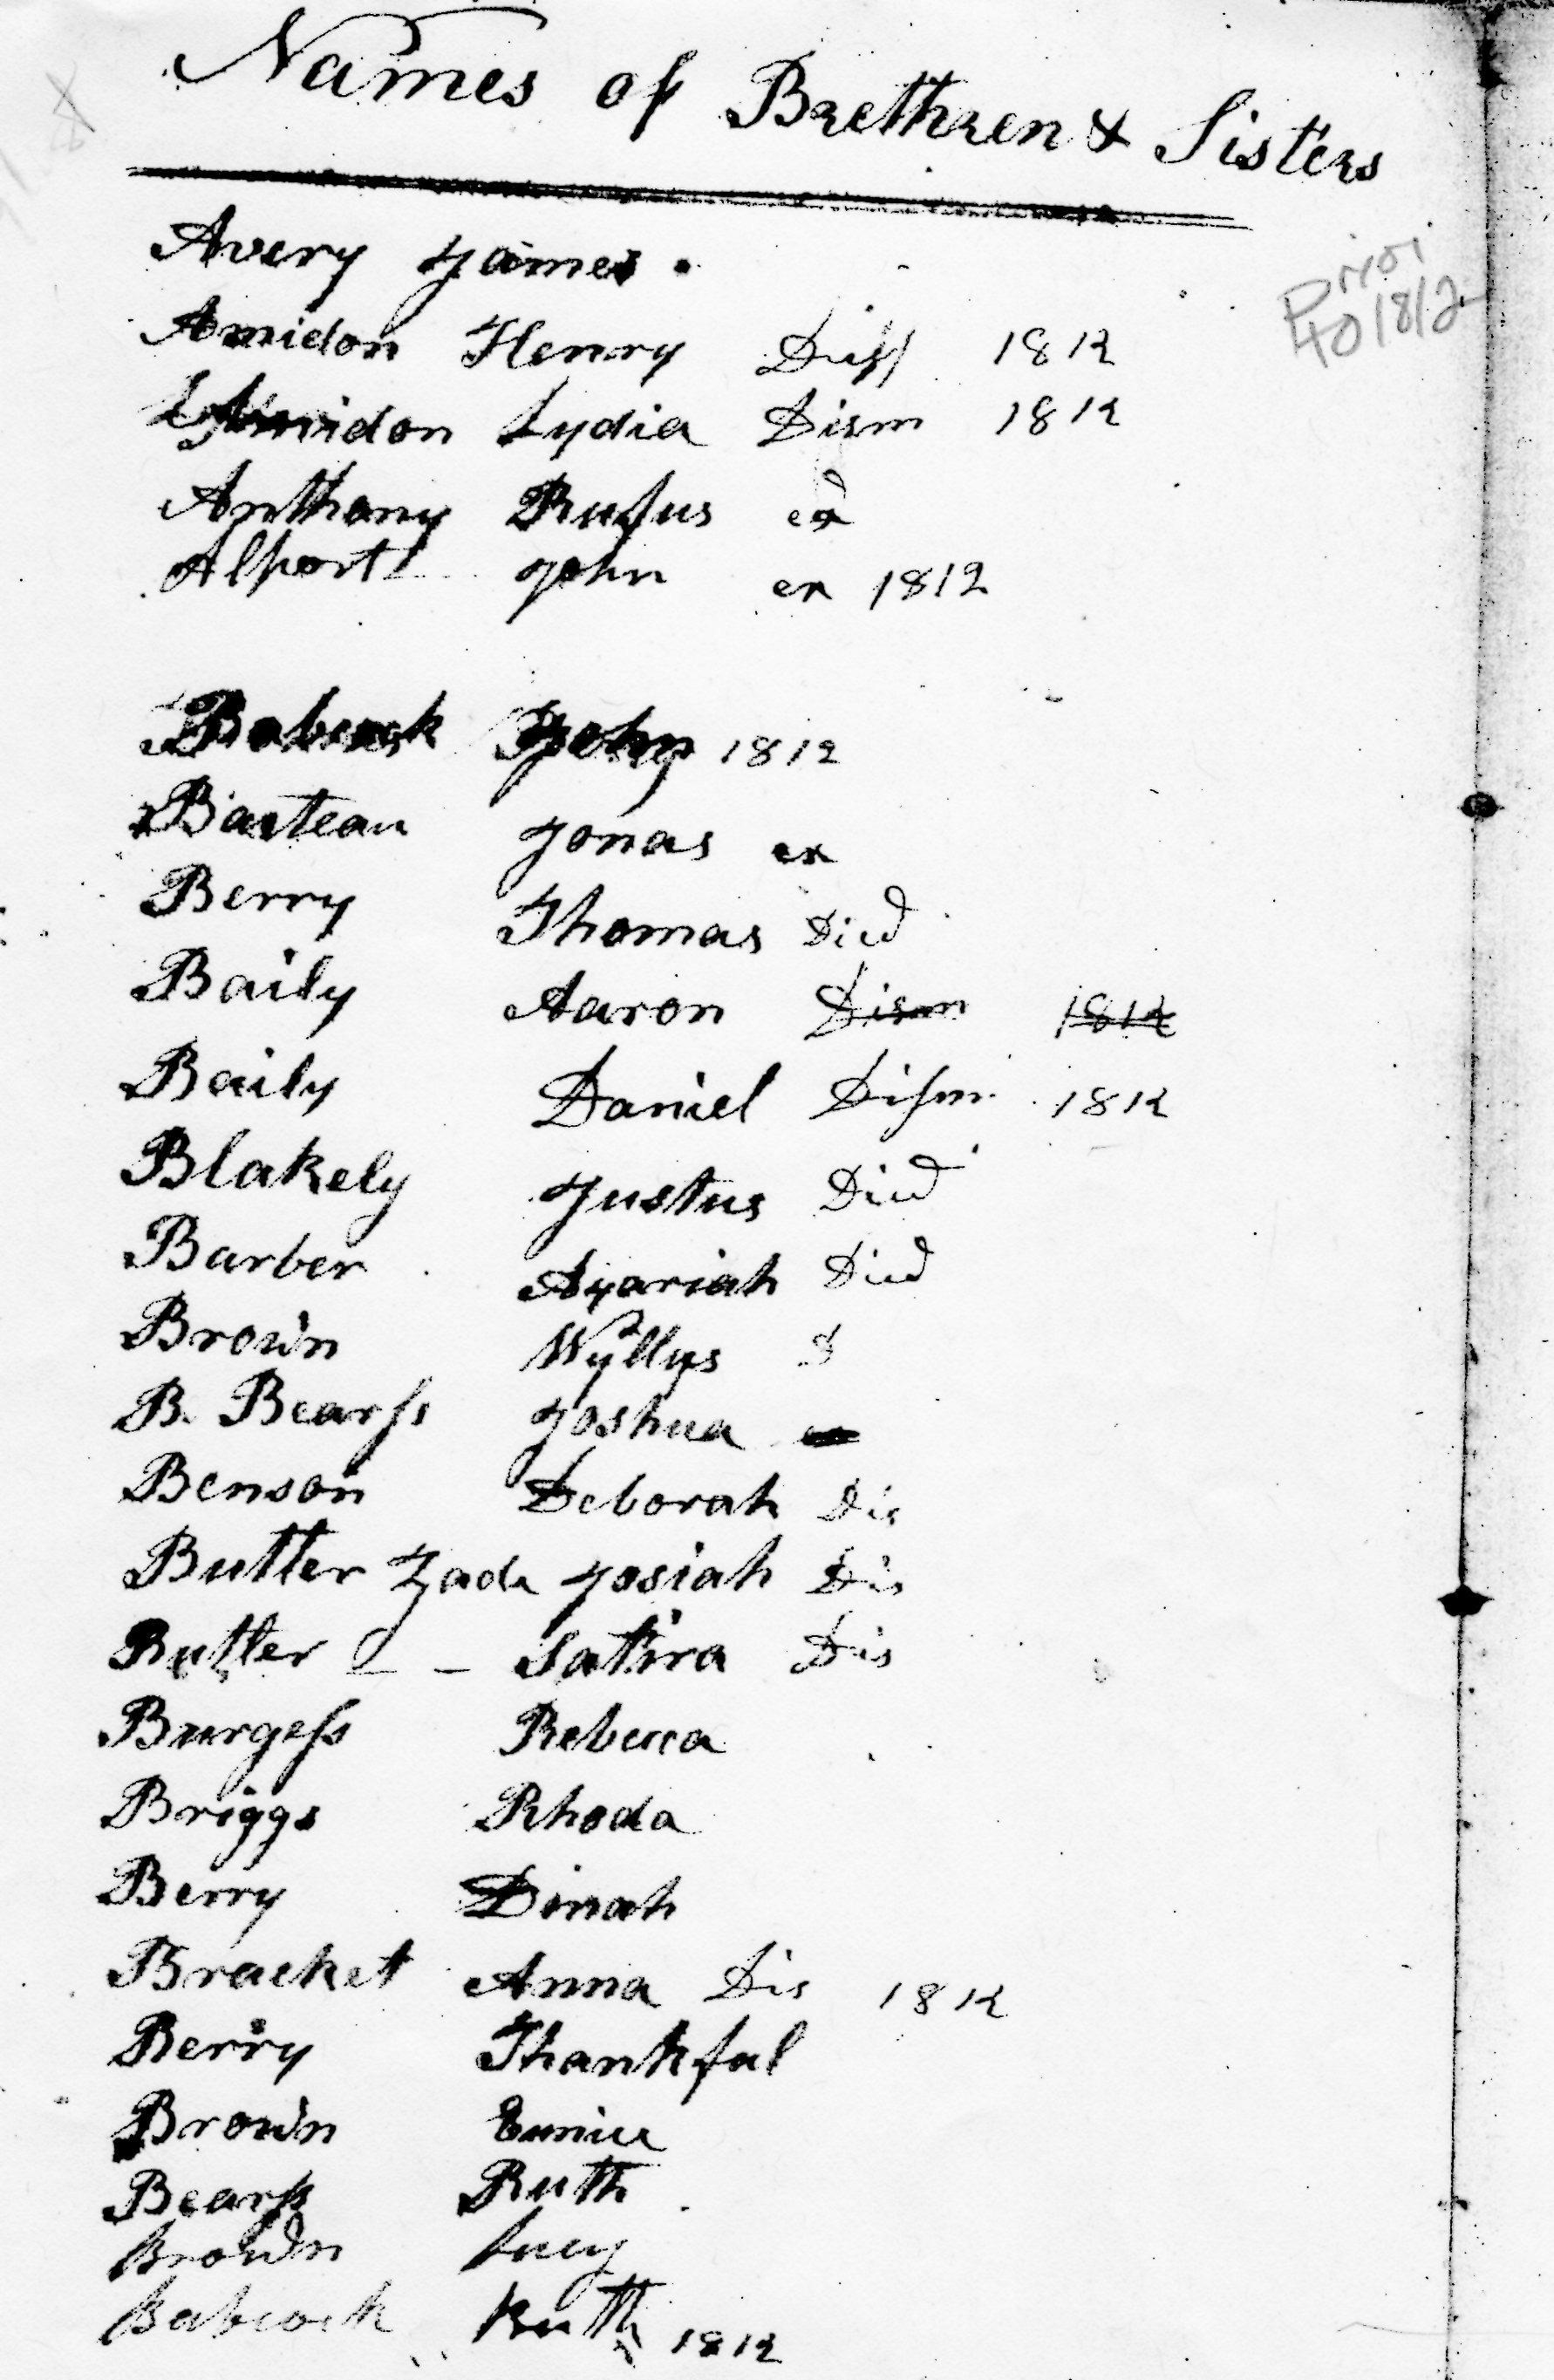 Names of Brethren & Sisters
Prior
to 1812
Avery James
Amidon Henry Diss 1812
Amidon Lydia Dism 1812
Anthony Rufus ex
Alport John ex 1812
Babcock John 1812
Barteau Jonas ex
Berry Thomas Died
Baily Aaron Dism 1812
Baily Daniel Diſm 1812
Blakely Justus Died
Barber Azariah Died
Brown Wyllys D
B. Bearſs Joshua
Benson Deborah Dis
Butler Zada Josiah Dis
Butler — — Satira Dis
Burgeſs Rebecca
Briggs Rhoda
Berry Dinah
Bracket Anna Dis 1812
Berry Thankful
Brown Eunice
Bearſs Ruth
Brown Lucy
Babcock Ruth 1812